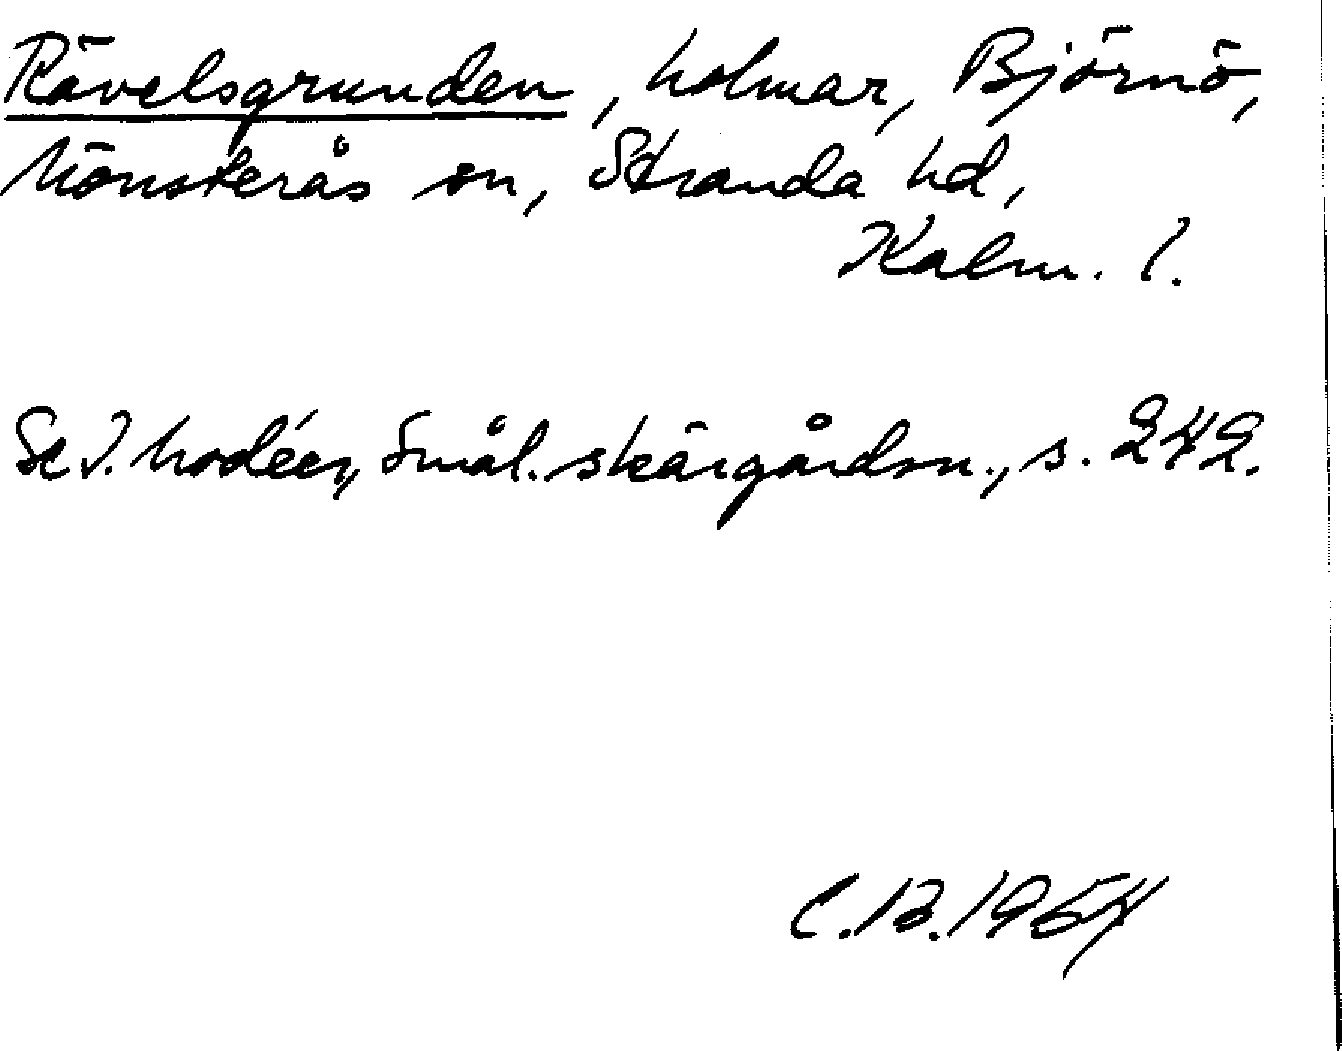 Rävelsgrunden, holmar, Björnö,
Mönsterås sn, Stranda hd,
Kalm. l.
Se I. Modéer, Smål. skärgårdsn., s. 242.
C.B.1954